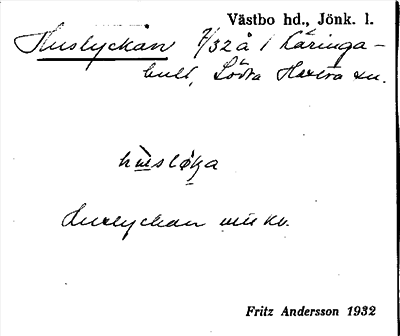 Västbo hd., Jönk. l.
Huslyckan 7/32 å 1 Käringa-
hult, Södra Hestra sn.
husløka
Huslyckan uti kv.
Fritz Andersson 1932